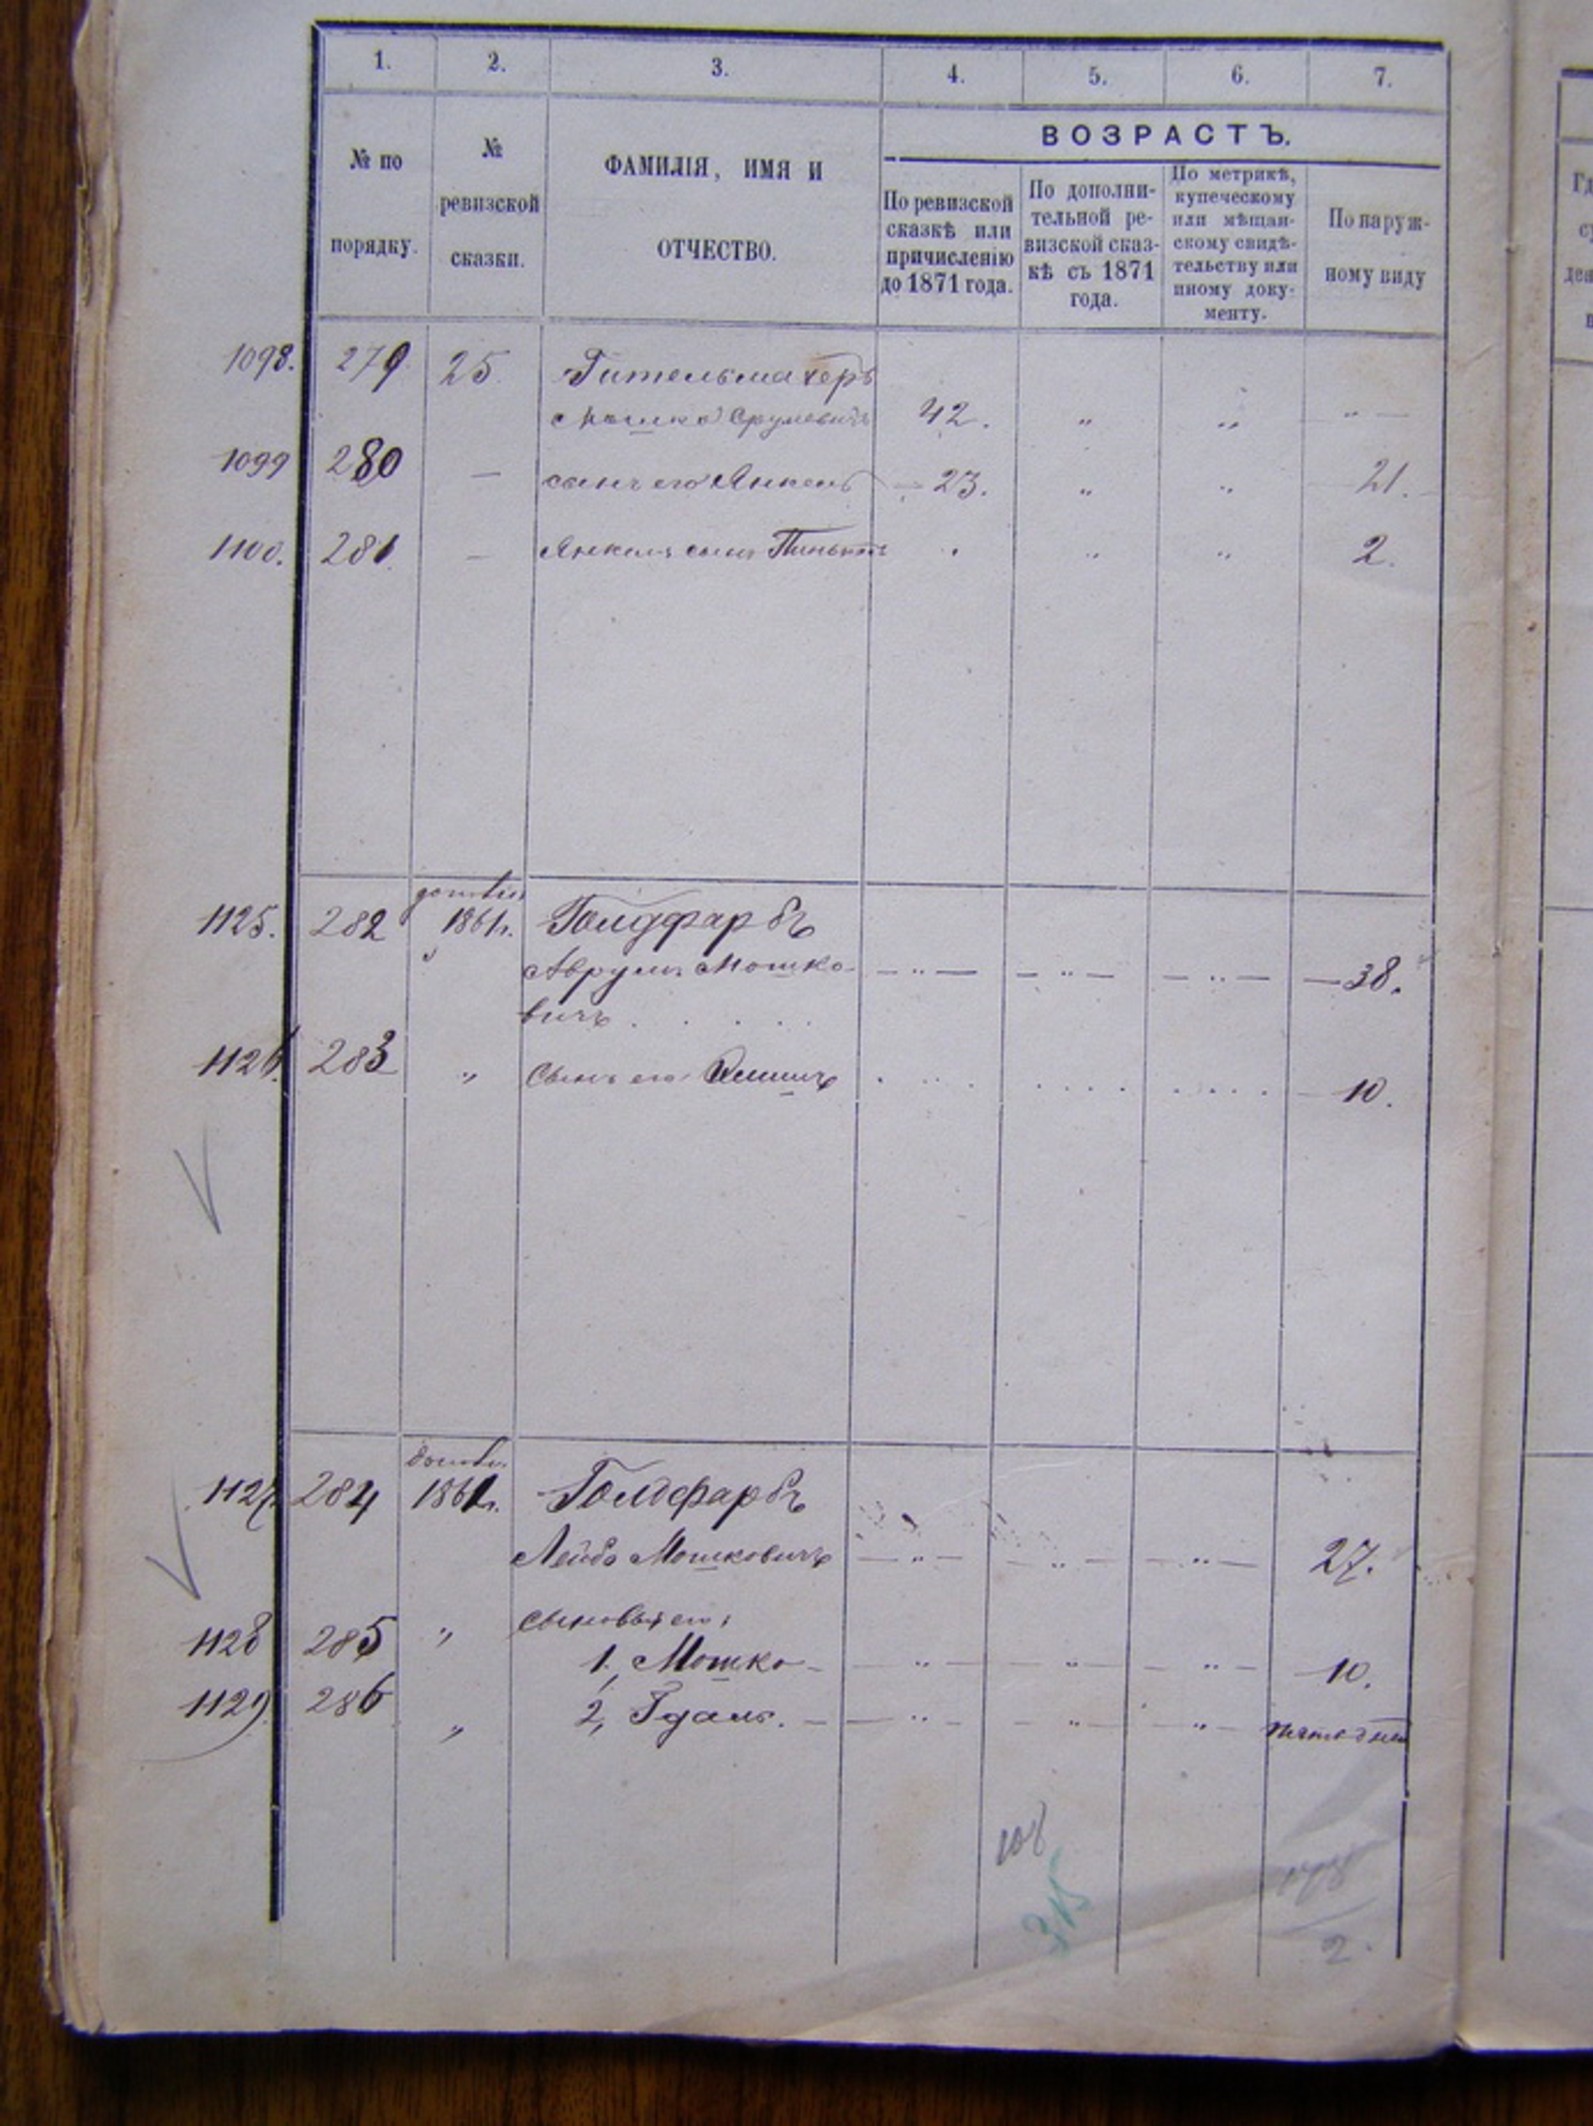 1. 2. 3. 4. 5. 6. 7.
№ по порядку.
№ ревизской сказки.
ФАМИЛІЯ, ИМЯ И
ОТЧЕСТВО.
ВОЗРАСТЪ.
По ревизской
сказкѣ или
причисленію
до 1871 года.
По дополни-
тельной ре-
визской сказ-
кѣ съ 1871
года.
По метрикѣ,
купеческому
или мѣщан-
скому свидѣ-
тельству или
иному доку-
менту.
По наруж-
ному виду
1098. 279 25 Гительмахеръ
Мошко Срулевичъ 42. " " "
1099 280 — сынъ его Янкель 23. " " 21.
1100. 281 — Янкеля сынъ " " 2.
1125. 282 1861г. Голдфарбъ
Аврумъ Мошко- — " — — " — — " — 38.
вичъ . . . . .
1126. 283 " Сынъ его 10.
1127. 284 1861г. Голдфарбъ
Лейба Мошковичъ — " — — " — — " — 27.
Сыновья его:
1128 285 " 1, Мошко — " — — " — — " — 10.
1129. 286 " 2, Гдаль. — " — — " — — " —
108
315
2.